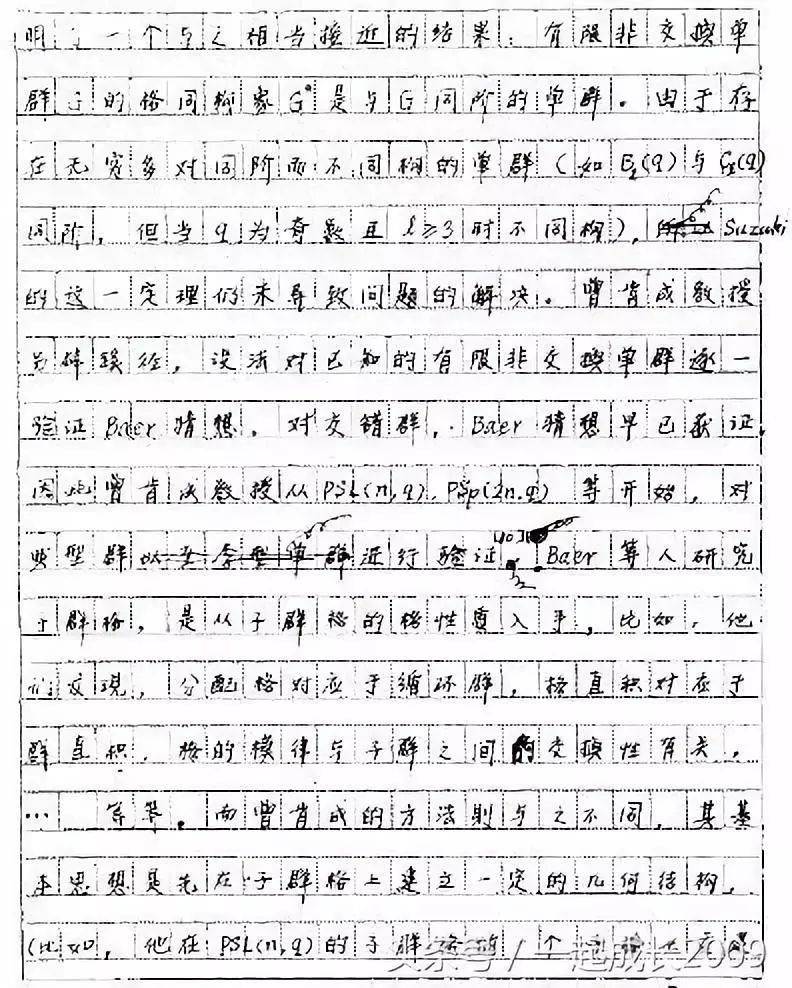 明了一个与之相当接近的结果：有限非交换单
群G的格同构象Gᵠ是与G同阶的单群。由于存
在无穷多对同阶而不同构的单群（如Bₗ(q)与Cₗ(q)
同阶，但当q为奇数且l≥3时不同构），Suzuki
的这一定理仍未导致问题的解决。曾肯成教授
另辟蹊径，设法对已知的有限非交换单群逐一
验证Baer猜想。对交错群，Baer猜想早已获证，
因此曾肯成教授从PSL(n,q)，PSp(2n,q)等开始，对
典型群进行验证[10]。Baer等人研究
子群格，是从子群格的格性质入手，比如，他
们发现，分配格对应于循环群，格直积对应于
群直积，格的模律与子群之间的交换性有关，
… 等等。而曾肯成的方法则与之不同，其基
本思想是先在子群格上建立一定的几何结构，
（比如，他在PSL(n,q)的子群格的一个
头条号 / 一起成长2009